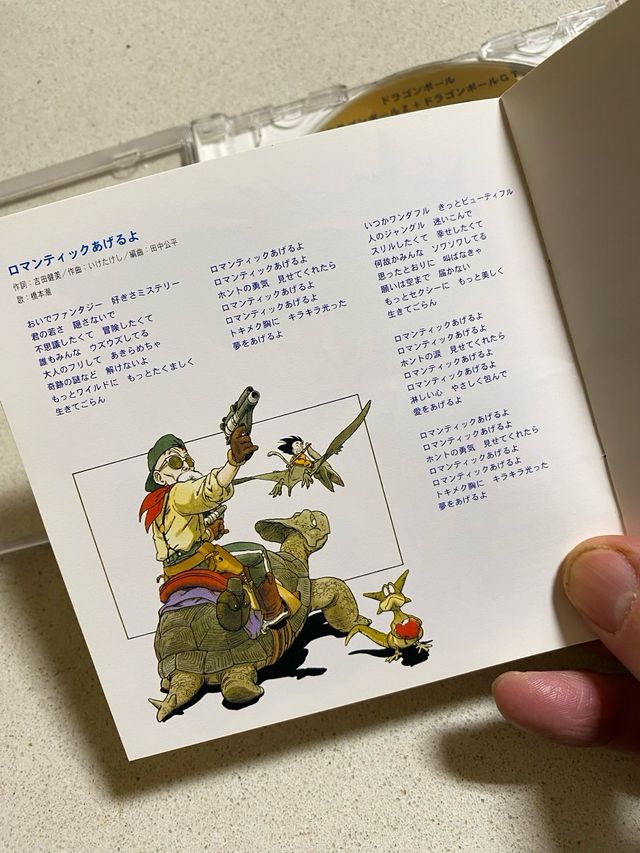 ドラゴンボール
ドラゴンボールZ+ドラゴンボールGT
ロマンティックあげるよ
作詞:吉田健美/作曲:いけたけし/編曲:田中公平
歌:橋本潮
おいでファンタジー 好きさミステリー
君の若さ 隠さないで
不思議したくて 冒険したくて
誰もみんな ウズウズしてる
大人のフリして あきらめちゃ
奇跡の謎など 解けないよ
もっとワイルドに もっとたくましく
生きてごらん
ロマンティックあげるよ
ロマンティックあげるよ
ホントの勇気 見せてくれたら
ロマンティックあげるよ
ロマンティックあげるよ
トキメク胸に キラキラ光った
夢をあげるよ
いつかワンダフル きっとビューティフル
人のジャングル 迷いこんで
スリルしたくて 幸せしたくて
何故かみんな ソワソワしてる
思ったとおりに 叫ばなきゃ
願いは空まで 届かない
もっとセクシーに もっと美しく
生きてごらん
ロマンティックあげるよ
ロマンティックあげるよ
ホントの涙 見せてくれたら
ロマンティックあげるよ
ロマンティックあげるよ
淋しい心 やさしく包んで
愛をあげるよ
ロマンティックあげるよ
ロマンティックあげるよ
ホントの勇気 見せてくれたら
ロマンティックあげるよ
ロマンティックあげるよ
トキメク胸に キラキラ光った
夢をあげるよ